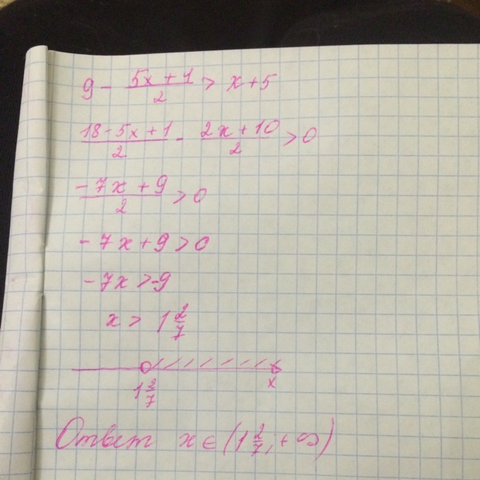 9 - (5x + 1)/2 > x + 5
(18 - 5x + 1)/2 - (2x + 10)/2 > 0
(-7x + 9)/2 > 0
-7x + 9 > 0
-7x > -9
x > 1 2/7
1 2/7 x
Ответ x ∈ (1 2/7, +∞)